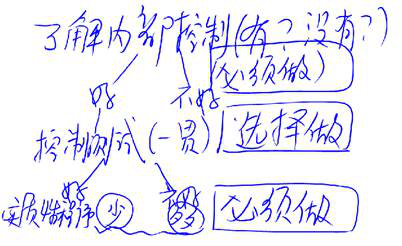 了解内部控制(有?没有?)
(必须做)
好 不好
控制测试(一贯) 选择做
好
实质性程序 少 多 必须做